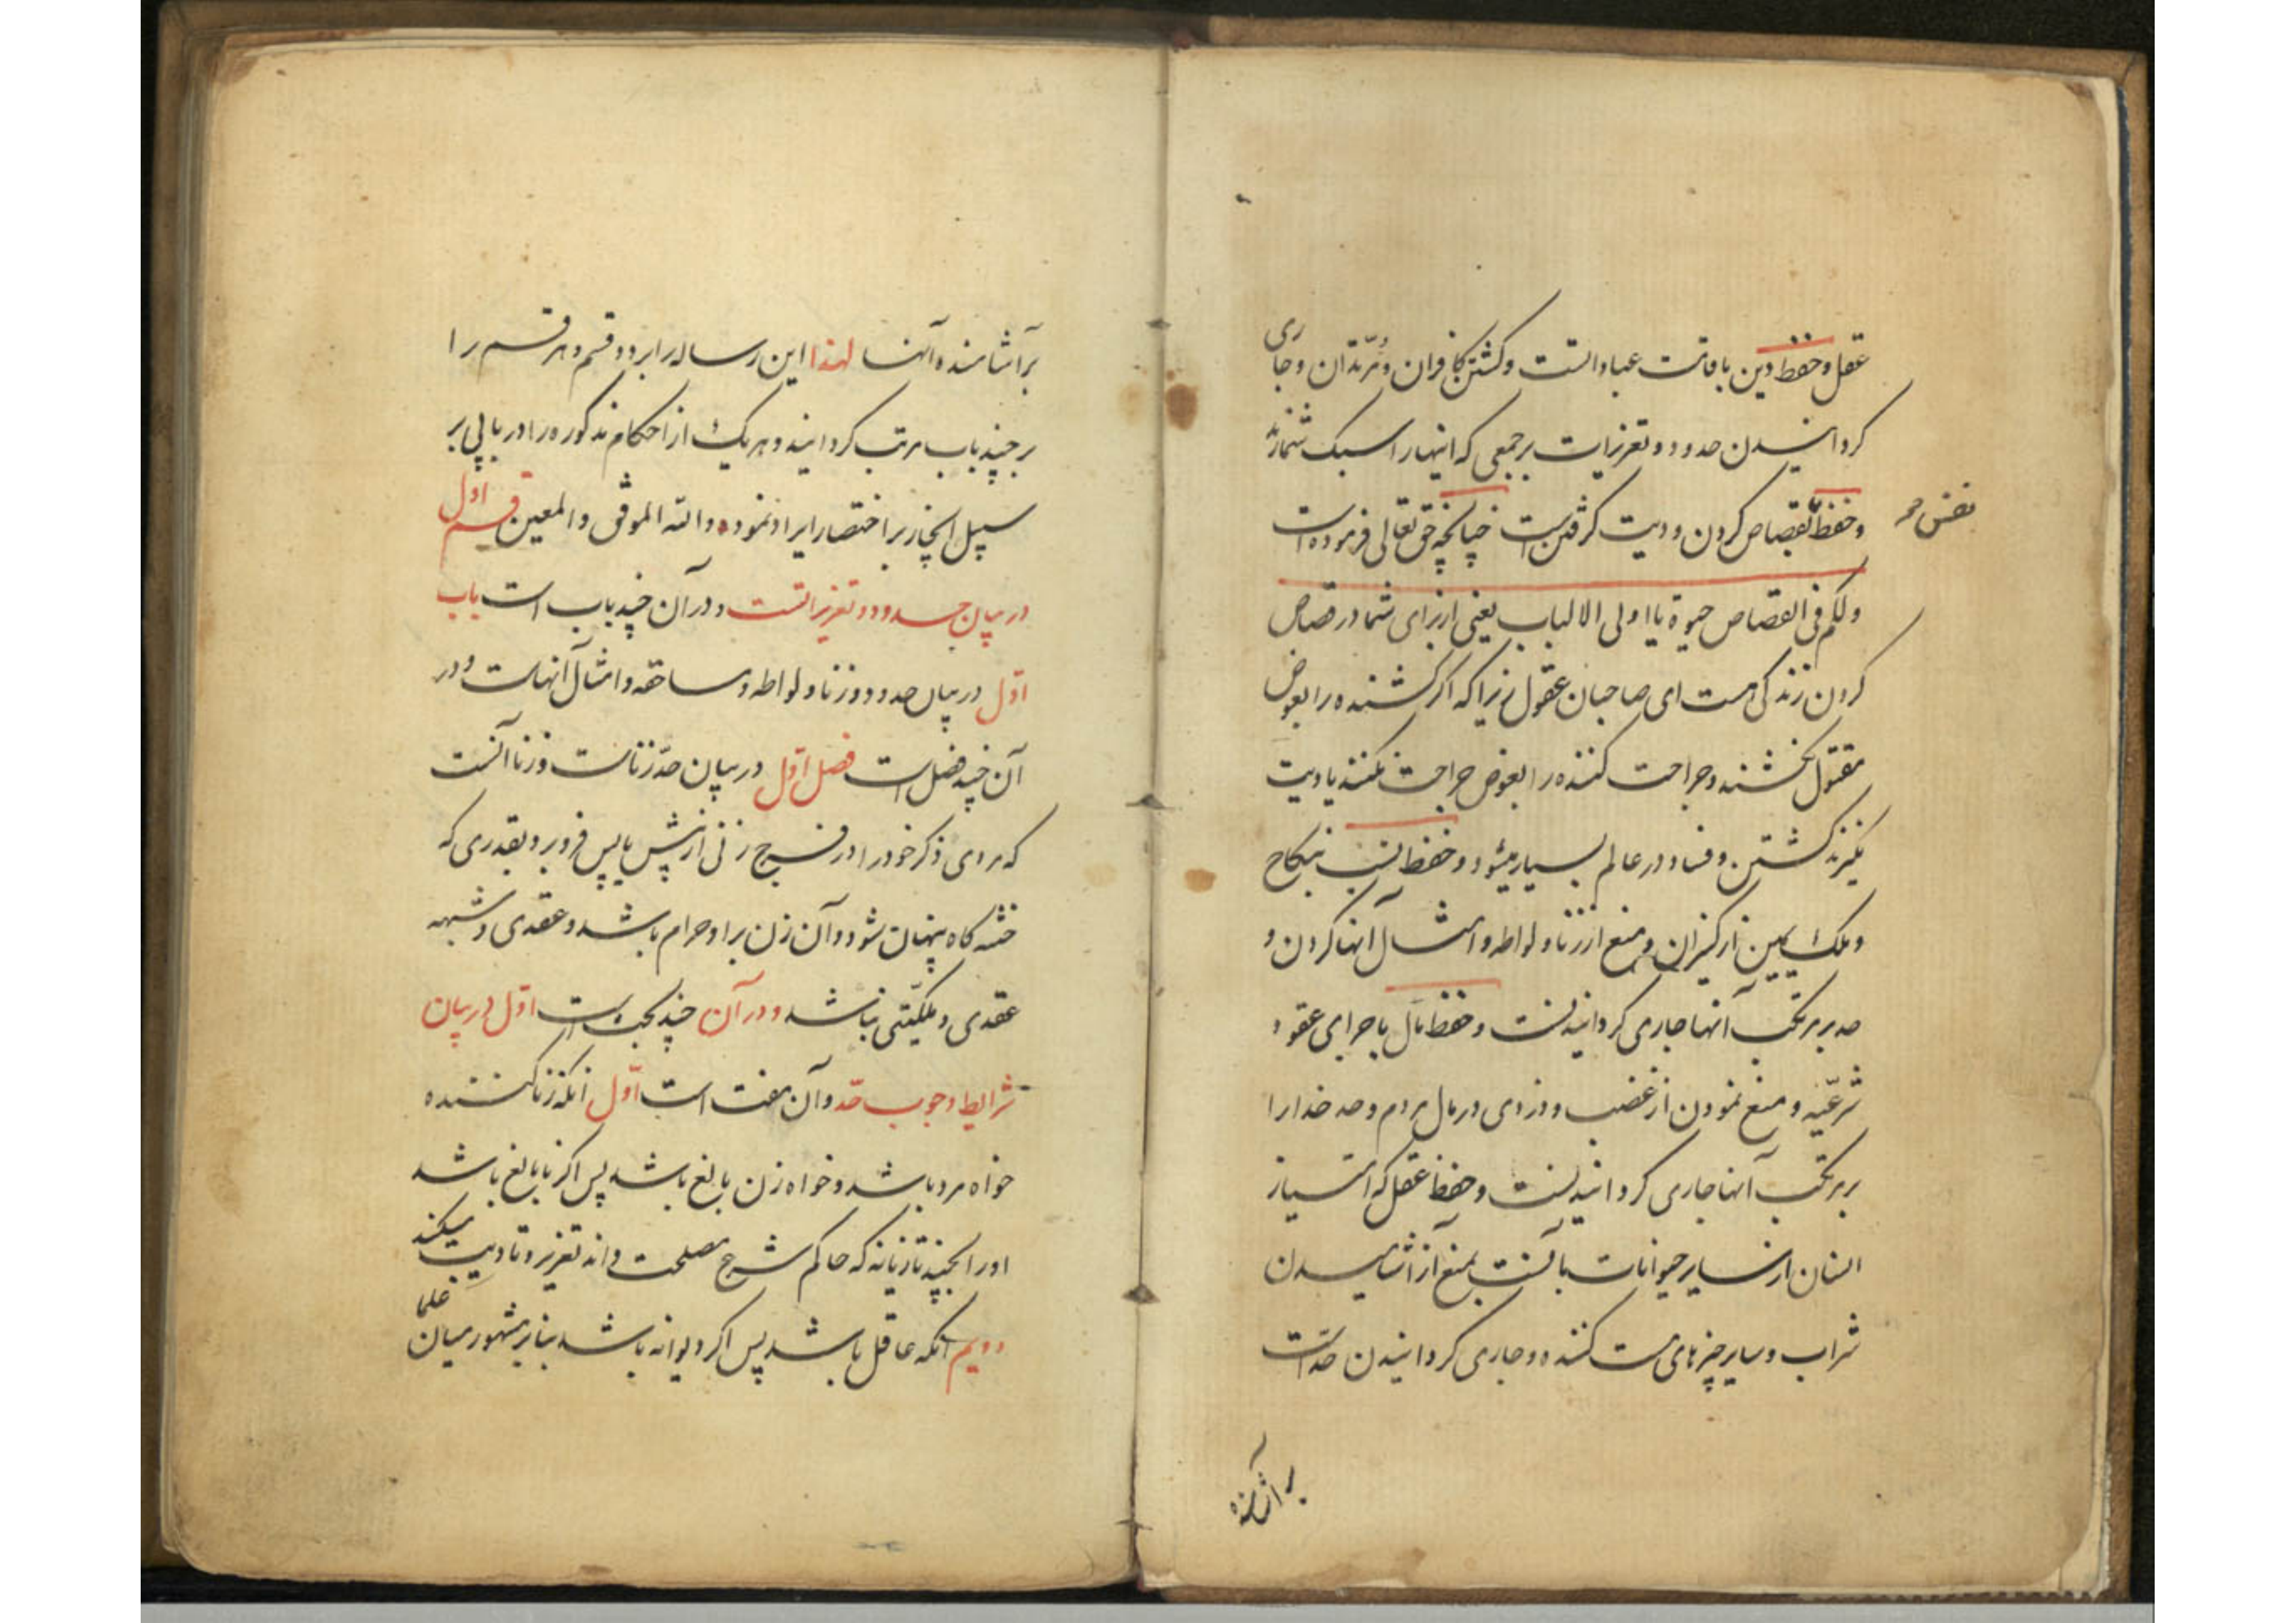 عقل و حفظ دین باقامت عباداتست و کشتن کافران و مرتدان و جاری
کردانیدن حدود و تعزیرات بر جمعی که اینها را سبک شمارند
و حفظ بقصاص کردن و دیت کرفتن است چنانچه حق تعالی فرموده است
نفس صح
ولکم فی القصاص حیوة یا اولی الالباب یعنی از برای شما در قصاص
کردن زندکی هست ای صاحبان عقول زیرا که اکر کشنده را بعوض
مقتول نکشند و جراحت کننده را بعوض جراحت نکنند یا دیت
نکیرند کشتن و فساد در عالم بسیار میشود و حفظ نسب بنکاح
و ملک یمین از کنیزان و منع از زنا و لواطه و امثال آنها کردن و
حد بر مرتکب آنها جاری کردانیدنست و حفظ مال باجرای عقود
شرعیّه و منع نمودن از غصب و دزدی در مال مردم و حد خدا را
بر مرتکب آنها جاری کردانیدنست و حفظ عقل که امتیاز
انسان از سایر حیوانات بآنست بمنع از آشامیدن
شراب و سایر چیزهای مست کننده و جاری کردانیدن حد است
بر آشامنده
بر آشامنده آنها لهذا این رساله را بر دو قسم و هر قسم را
بر چند باب مرتب کردانید و هر یک از احکام مذکوره را در بابی بر
سبیل ایجاز بر اختصار ایراد نموده و الله الموفق و المعین قسم اول
در بیان حدود و تعزیراتست و در آن چند باب است باب
اوّل در بیان حدود زنا و لواطه و مساحقه و امثال آنهاست و در
آن چند فصل است فصل اوّل در بیان حدّ زناست و زنا آنست
که مردی ذکر خود را در فرج زنی از پیش یا پس فرو برد بقدری که
ختنه کاه پنهان شود و آن زن بر او حرام باشد و عقدی و شبهه
عقدی و ملکیّتی نباشد و در آن چند بحث است اوّل در بیان
شرایط وجوب حدّ و آن هفت است اوّل آنکه زنا کننده
خواه مرد باشد و خواه زن بالغ باشد پس اکر نابالغ باشد
او را بچند تازیانه که حاکم شرع مصلحت داند تعزیر و تادیب میکند
دویم آنکه عاقل باشد پس اکر دیوانه باشد بنابر مشهور میان علما